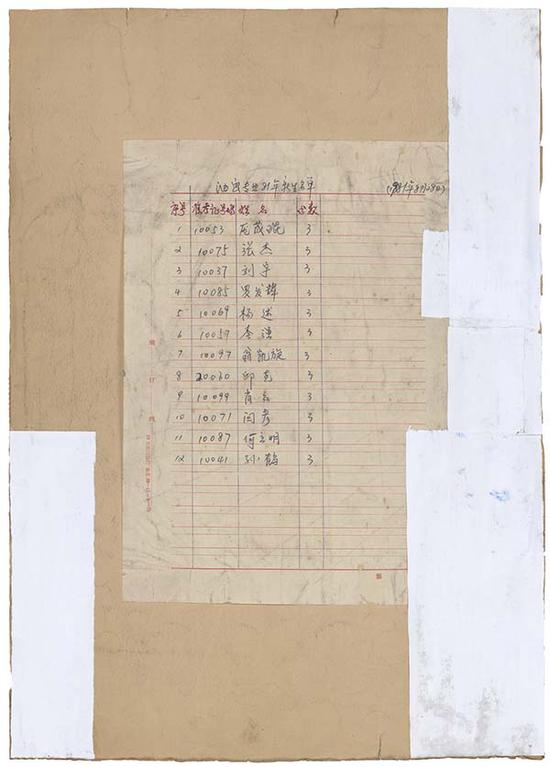 油画专业81年新生名单
序号 准考证号码 姓名 份数
1 10053 庞茂琨 3
2 10075 张杰 3
3 10037 刘宇 3
4 10085 罗发辉 3
5 10069 杨述 3
6 10059 李强 3
7 10097 翁凯旋 3
8 20030 邱光
9 10099 肖 3
10 10071 闫彦 3
11 10087 何立明 3
12 10041 孙鹤 3